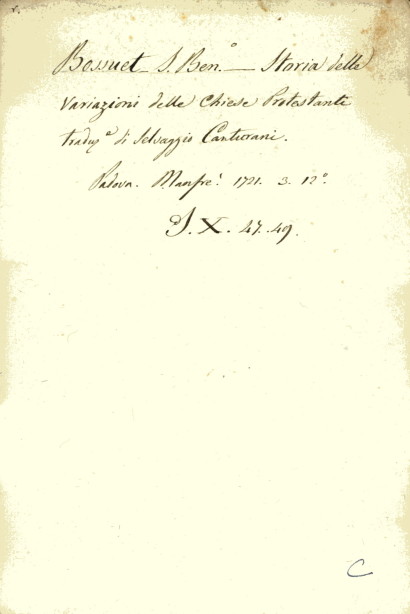 Bossuet S. Ben.º — Storia delle
Variazioni delle Chiese Protestanti
traduz.ª di Selvaggio Canturani.
Padova. Manfrè. 1721. 3. 12º.
S. X. 47. 49.
C